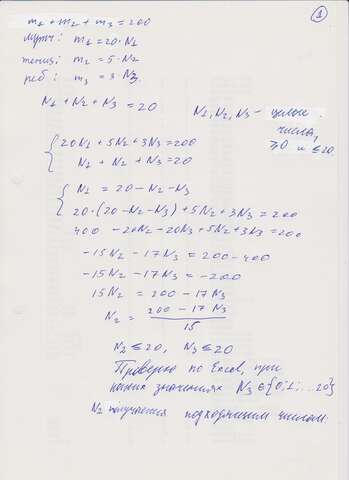 ①
m₁ + m₂ + m₃ = 200
мужч: m₁ = 20·N₁
m₂ = 5·N₂
реб: m₃ = 3·N₃.
N₁ + N₂ + N₃ = 20
N₁, N₂, N₃ - целые
числа,
≥0 и ≤20.
20N₁ + 5N₂ + 3N₃ = 200
N₁ + N₂ + N₃ = 20
N₁ = 20 - N₂ - N₃
20·(20 - N₂ - N₃) + 5N₂ + 3N₃ = 200
400 - 20N₂ - 20N₃ + 5N₂ + 3N₃ = 200
-15N₂ - 17N₃ = 200 - 400
-15N₂ - 17N₃ = -200
15N₂ = 200 - 17N₃
N₂ = (200 - 17N₃)/15
N₂ ≤ 20, N₃ ≤ 20
Проверяю по Excel, при
каких значениях N₃ ∈ {0; 1; ... 20}
N₂ получается подходящим числом